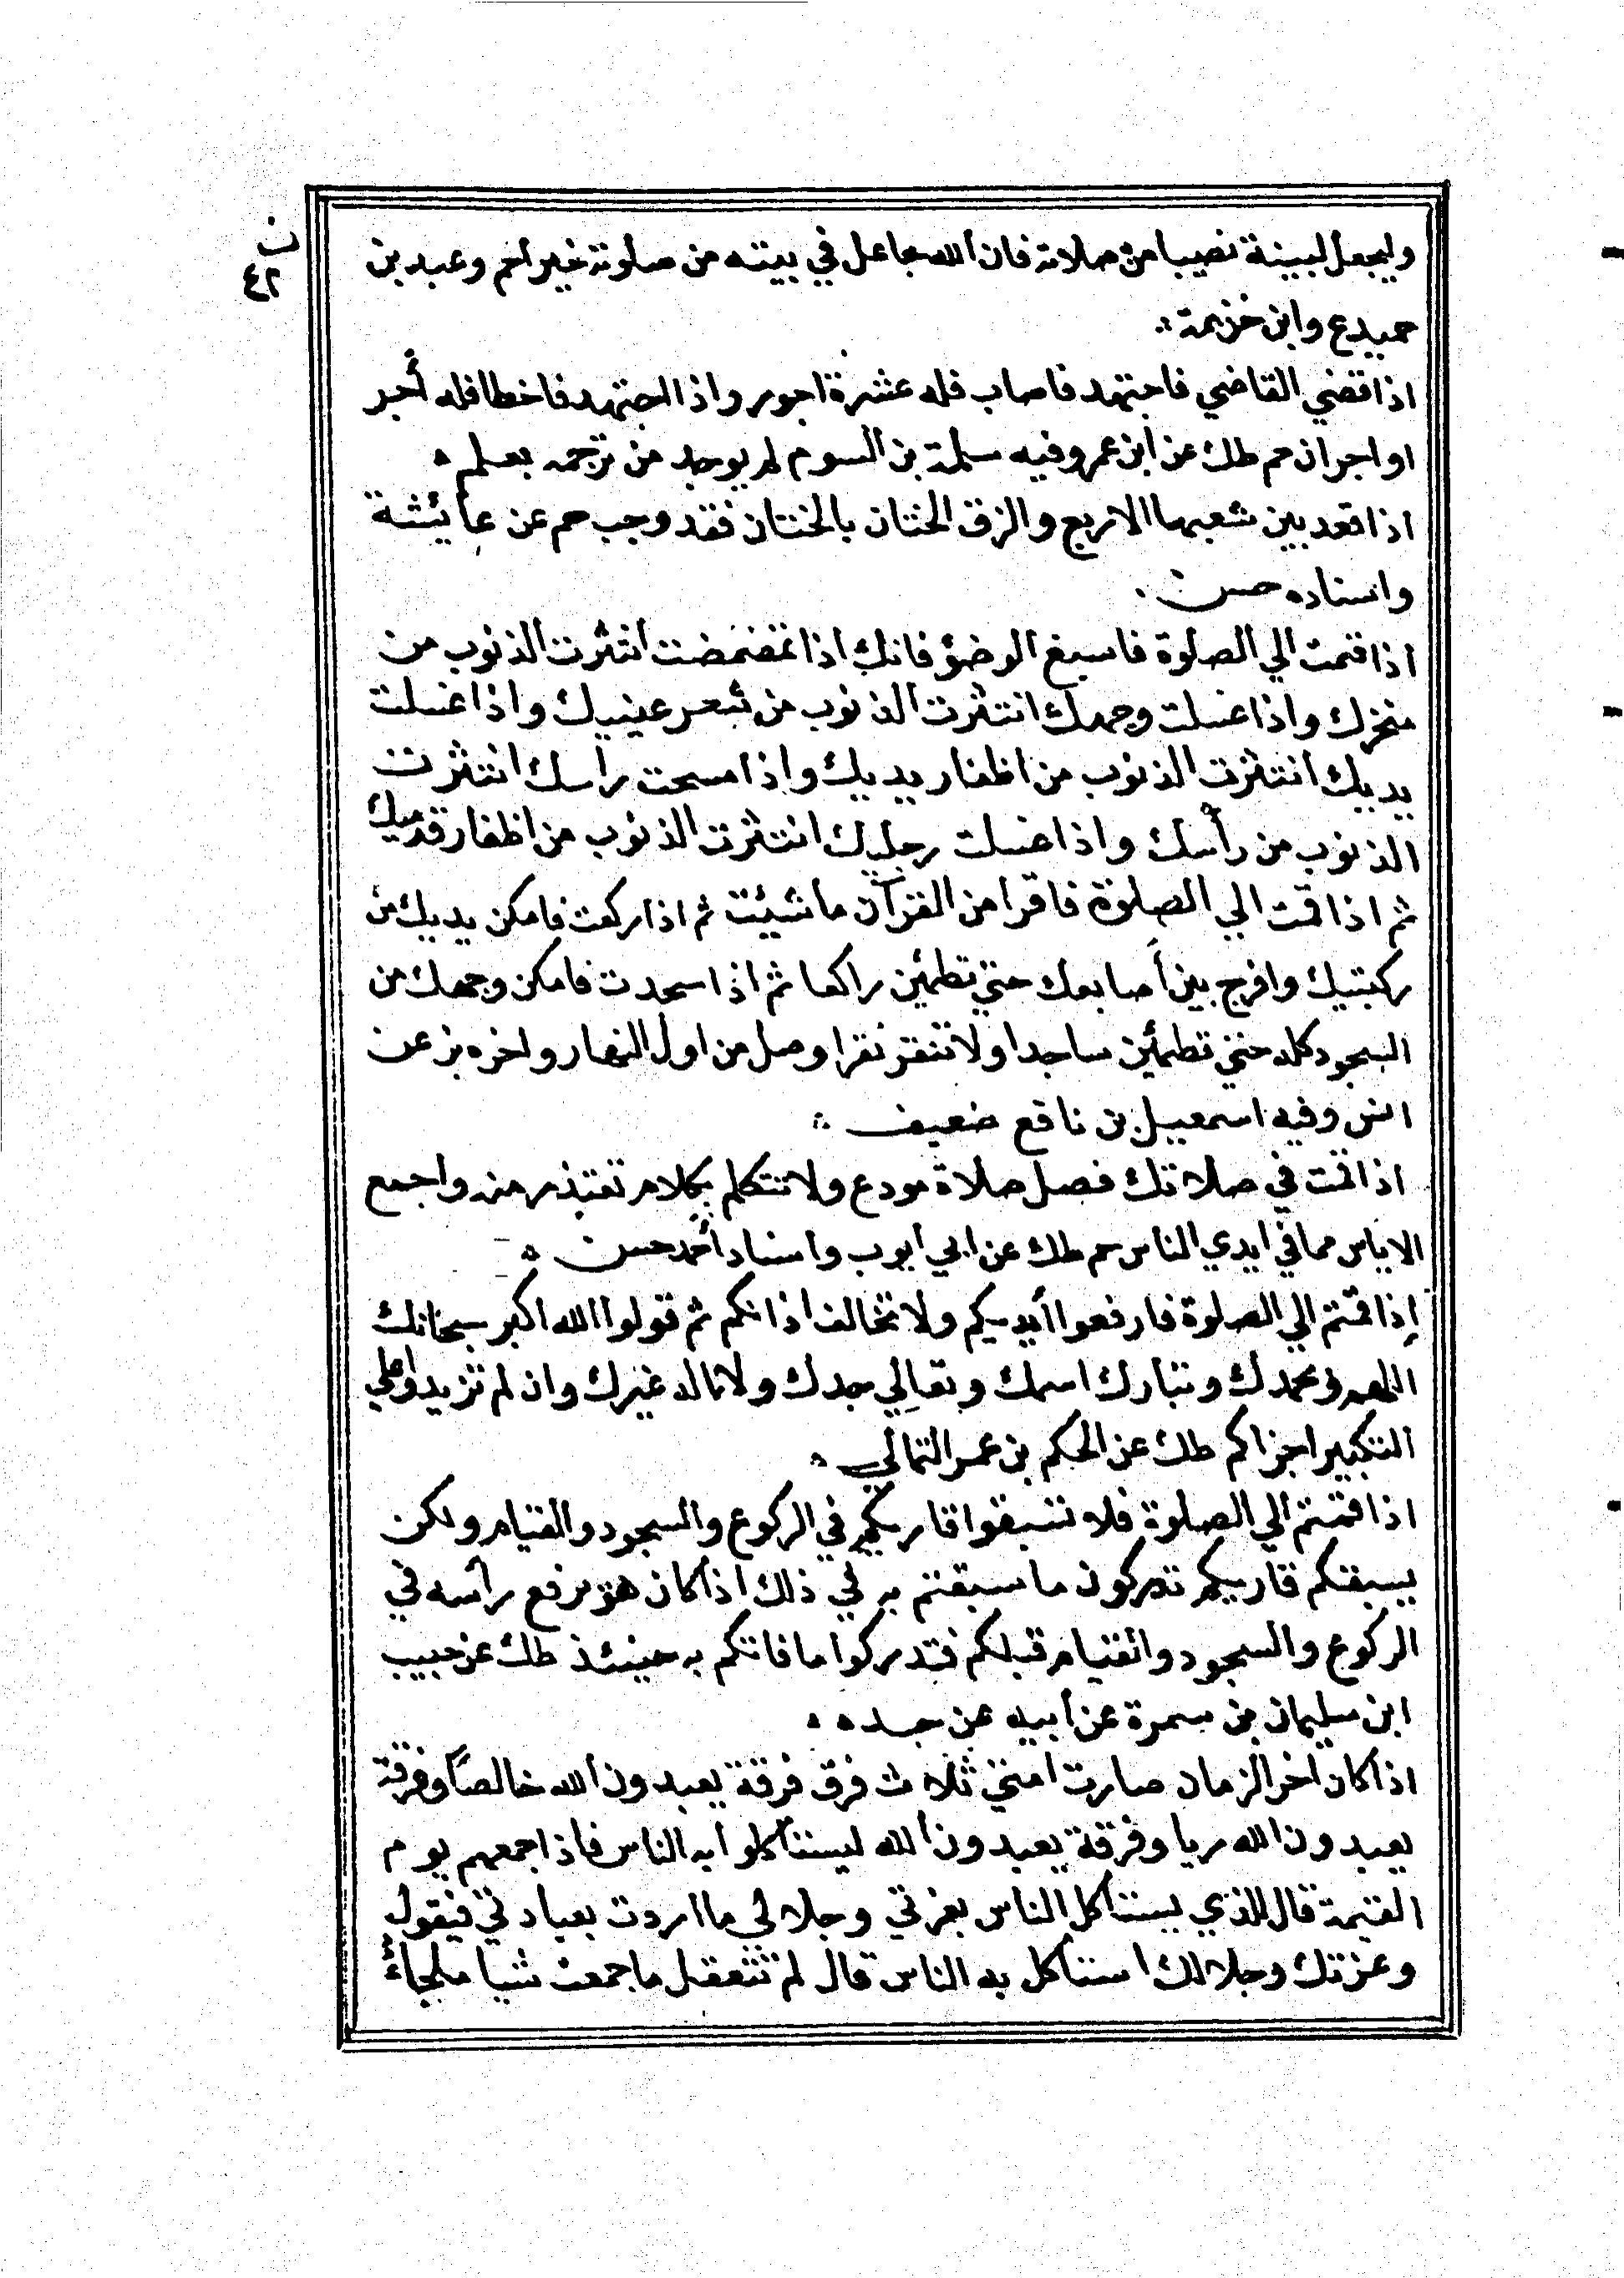 ن
٤٢
وليجعل لبيتة نصيبا من صلاته فان الله جاعل في بيته من صلوته خيرا حم وعبد بن
حميد ع وابن خزيمة
اذا قضي القاضي فاجتهد فاصاب فله عشرة اجور واذا اجتهد فاخطا فله أجر
او اجران حم طك عن ابن عمرو فيه سلمة بن السوم لم يوجد من ترجمه بعلم ه
اذا قعد بين شعبها الاربع والزق الختان بالختان فقد وجب حم عن عائيشة
واسناده حسن
اذا قمت الي الصلوة فاسبغ الوضؤ فانك اذا تمضمضت انتثرت الذنوب من
منخرك واذا غسلت وجهك انتثرت الذنوب من شعر عينيك واذا غسلت
يديك انتثرت الذنوب من اظفار يديك واذا مسحت راسك انتثرت
الذنوب من رأسك واذا غسلت رجليك انتثرت الذنوب من اظفار قدميك
ثم اذا قمت الي الصلوة فاقرا من القرآن ما شيئت ثم اذا ركعت فامكن يديك من
ركبتيك وافرج بين أصابعك حتي تطمئين راكعا ثم اذا سجدت فامكن وجهك من
السجود كله حتي تطمئين ساجدا ولا تنقر نقرا وصل من اول النهار واخره بز عن
انس وفيه اسمعيل بن نافع ضعيف
اذا قمت في صلاتك فصل صلاة مودع ولا تتكلم بكلام تعتذر منه واجمع
الاياس مما في ايدي الناس حم طك عن ابي أيوب واسناد أحمد حسن ه
إذا قمتم الي الصلوة فارفعوا أيديكم ولا تخالف اذانكم ثم قولوا الله اكبر سبحانك
اللهم وبحمدك وتبارك اسمك وتعالي جدك ولا اله غيرك وان لم تزيدوا علي
التكبير اجزاكم طك عن الحكم بن عمر الثمالي ه
اذا قمتم الي الصلوة فلا تسبقوا قاريكم في الركوع والسجود والقيام ولكن
يسبقكم قاريكم تدركون ما سبقتم به في ذلك اذا كان هو يرفع رأسه في
الركوع والسجود والقيام قبلكم فتدركوا ما فاتكم به حينئذ طك عن حبيب
ابن سليمان بن سمرة عن أبيه عن جده ه
اذا كان اخر الزمان صارت امتي ثلاث فرق فرقة يعبدون الله خالصاً وفرقة
يعبدون الله ريا وفرقة يعبدون الله ليستأكلوا به الناس فاذا جمعهم يوم
القيمة قال للذي يستأكل الناس بعزتي وجلالي ما اردت بعبادتي فيقول
وعزتك وجلالك استأكل به الناس قال لم تتعقل ما جمعت شيا ملجاءً